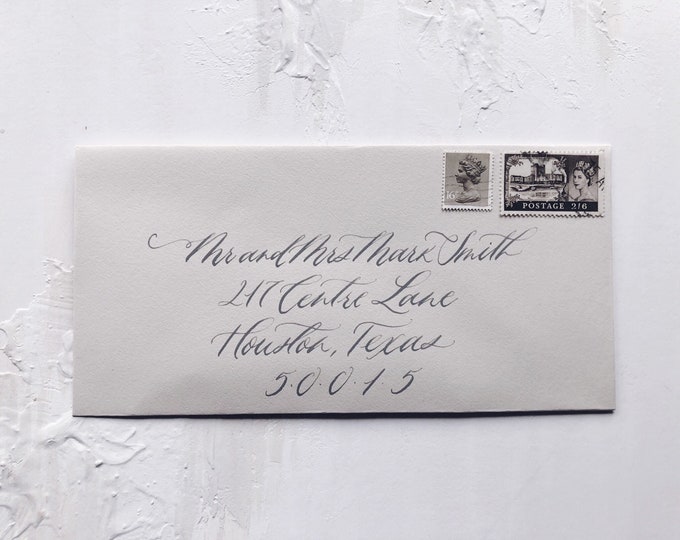 16
POSTAGE 2/6
Mr and Mrs Mark Smith
217 Centre Lane
Houston, Texas
5·0·0·1·5